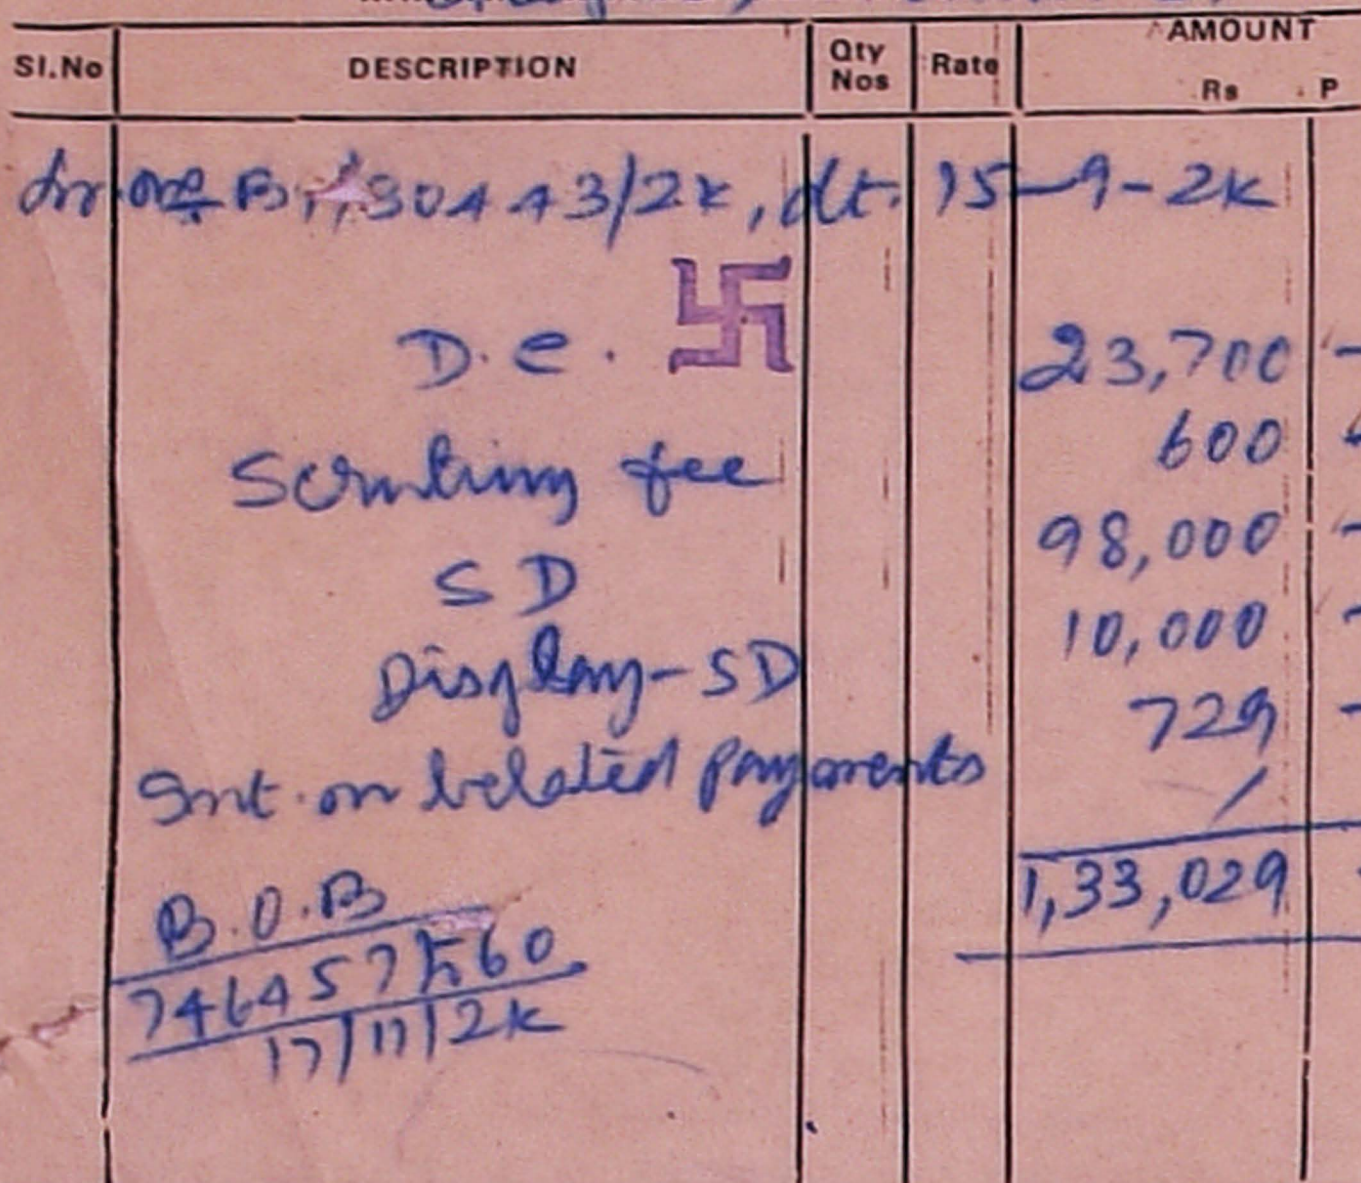 Sl.No DESCRIPTION Qty Nos Rate AMOUNT Rs P
30443/2K, dt. 15-9-2K
D.C. 23,700
Scrutiny fee 600
SD 98,000
Display-SD 10,000
729
Int. on belated payments
1,33,029
B.O.B
746457/560
17/11/2K